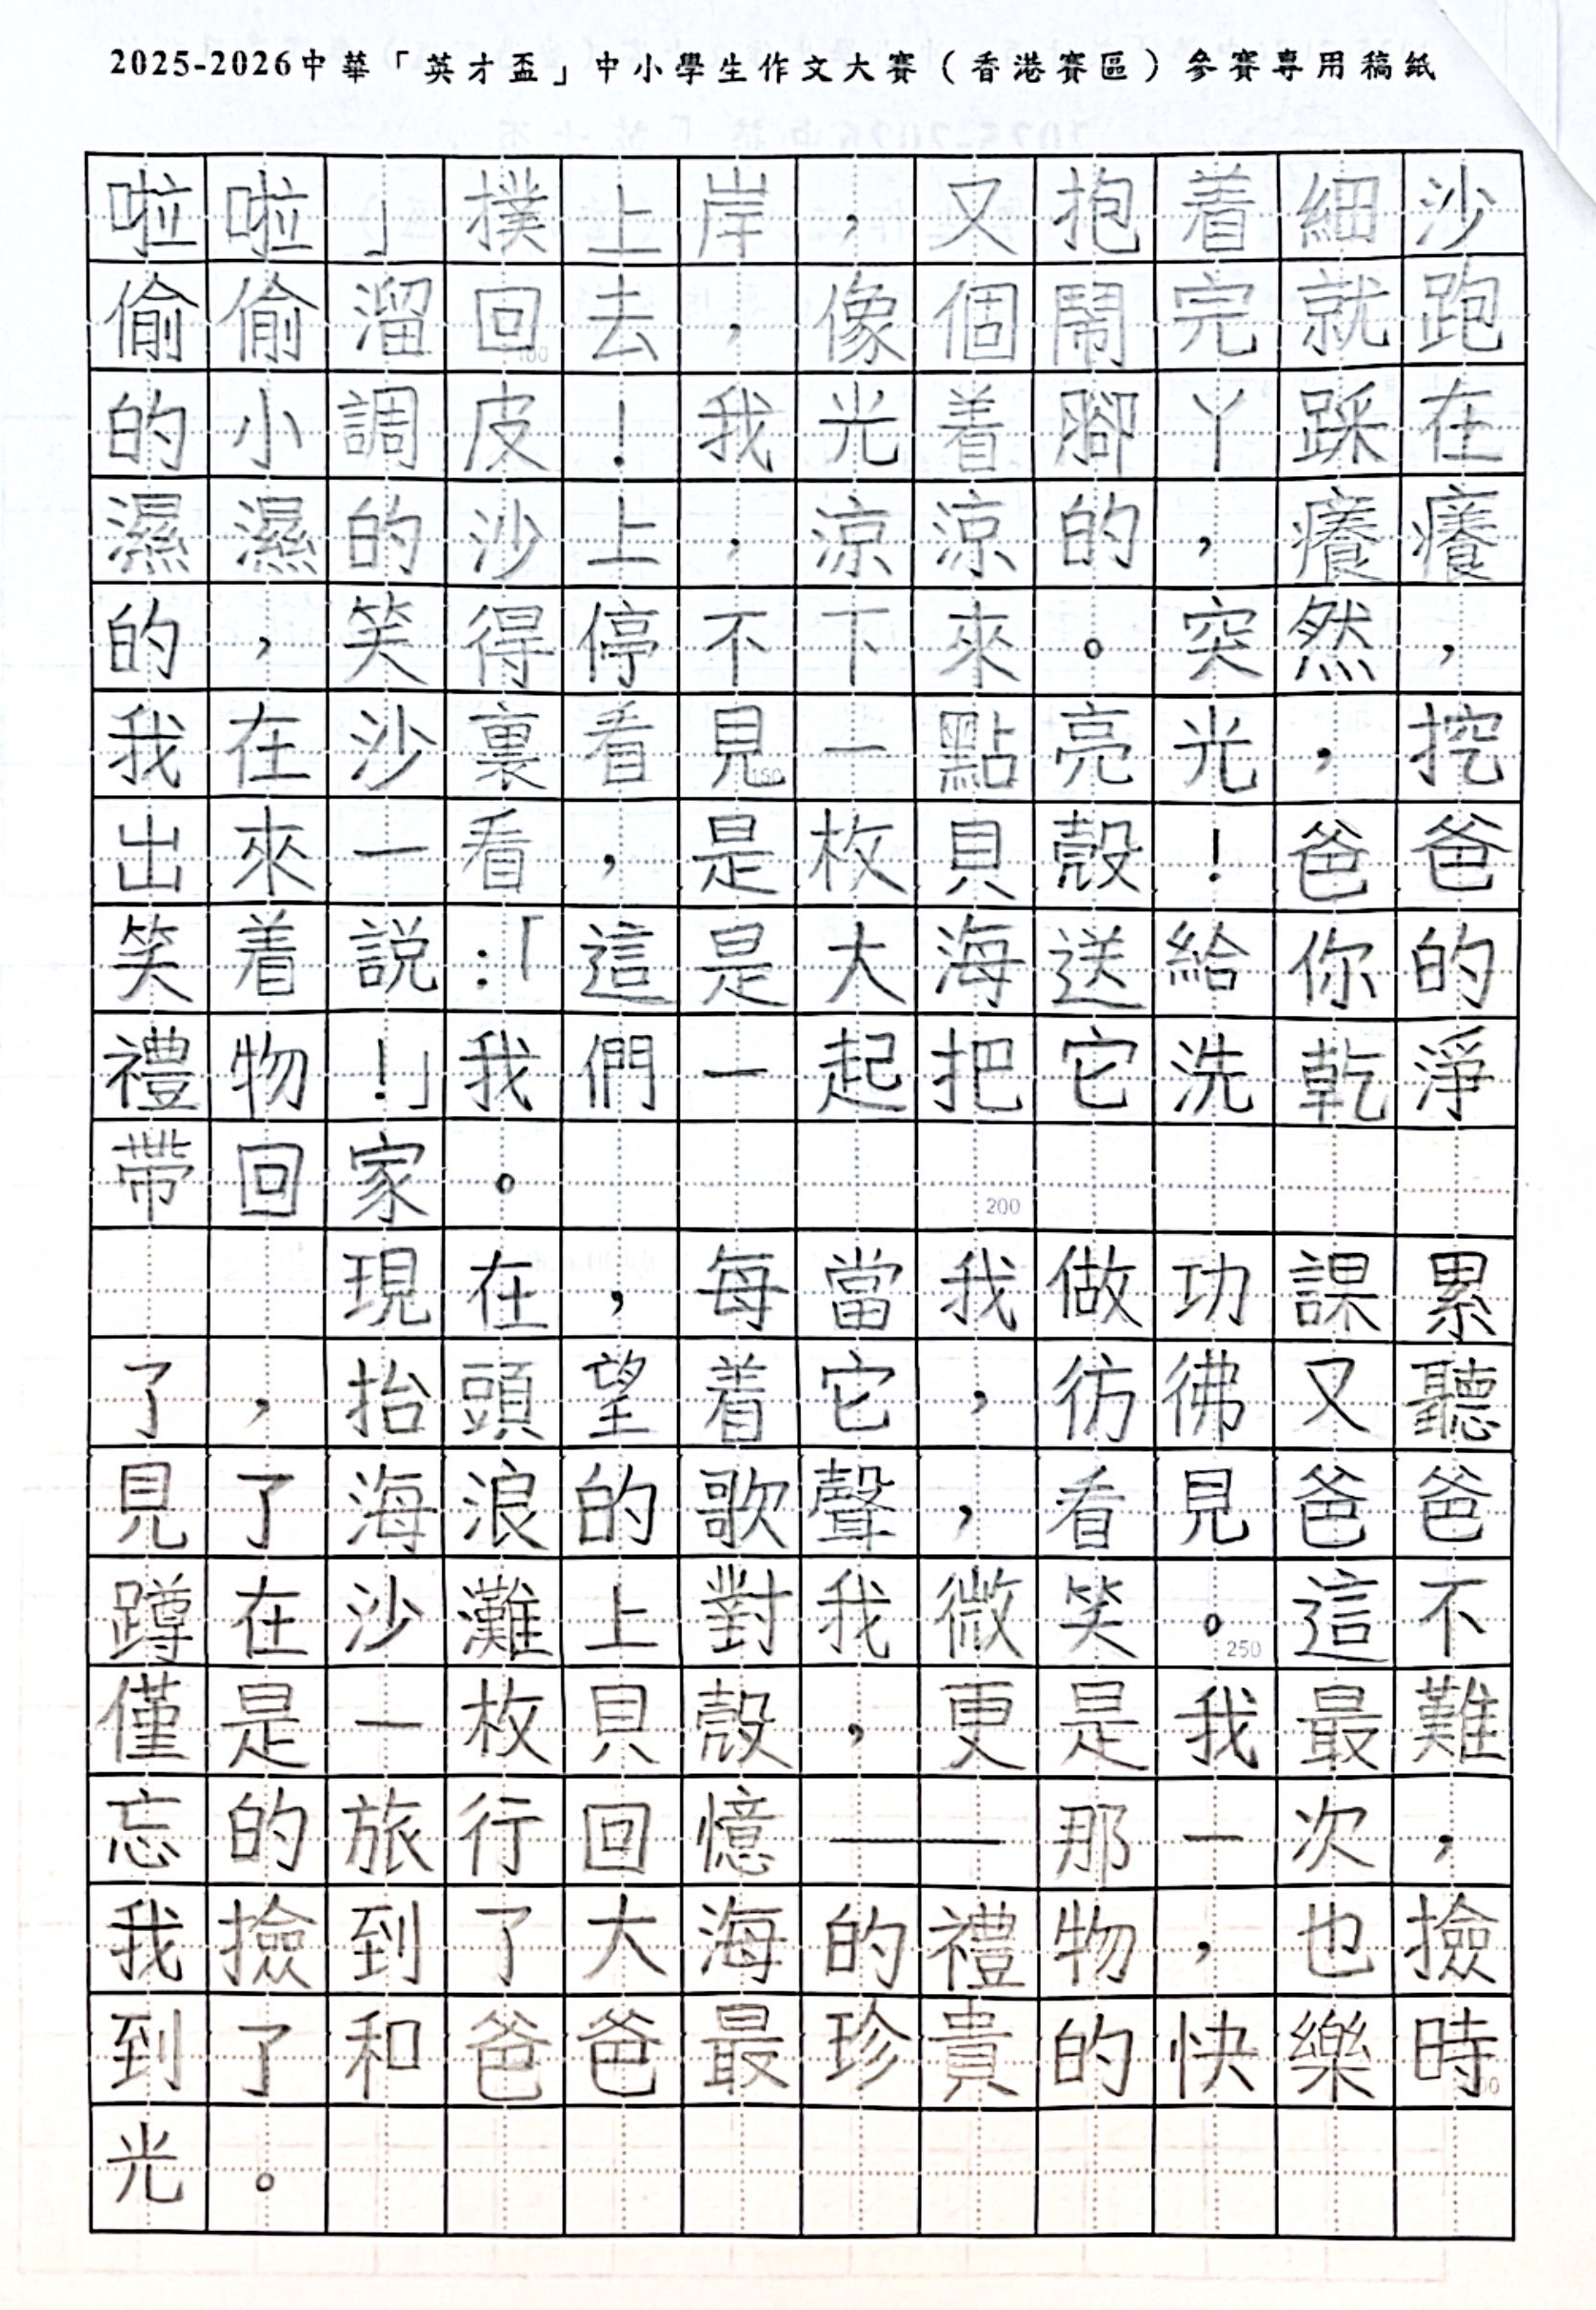 2025-2026中華「英才盃」中小學生作文大賽(香港賽區)參賽專用稿紙
啦啦」撲上岸,又抱着細沙
偷偷溜回去,像個鬧完就跑
的小調皮!我光着腳丫踩在
濕濕的沙上,涼涼的,癢癢
的,笑得停不下來。突然,
我在沙裏看見一點亮光,挖
出來一看,是枚貝殼!爸爸
笑着説:「這是大海送給你的
禮物!」我們一起把它洗乾淨
帶回家。
200
現在,每當我做功課累
了,抬頭望着它,彷彿又聽
見了海浪的歌聲,看見爸爸
蹲在沙灘上對我微笑。這不
250
僅是一枚貝殼,更是我最難
忘的旅行回憶——那一次,
我撿到了大海的禮物,也撿
到了和爸爸最珍貴的快樂時
光。